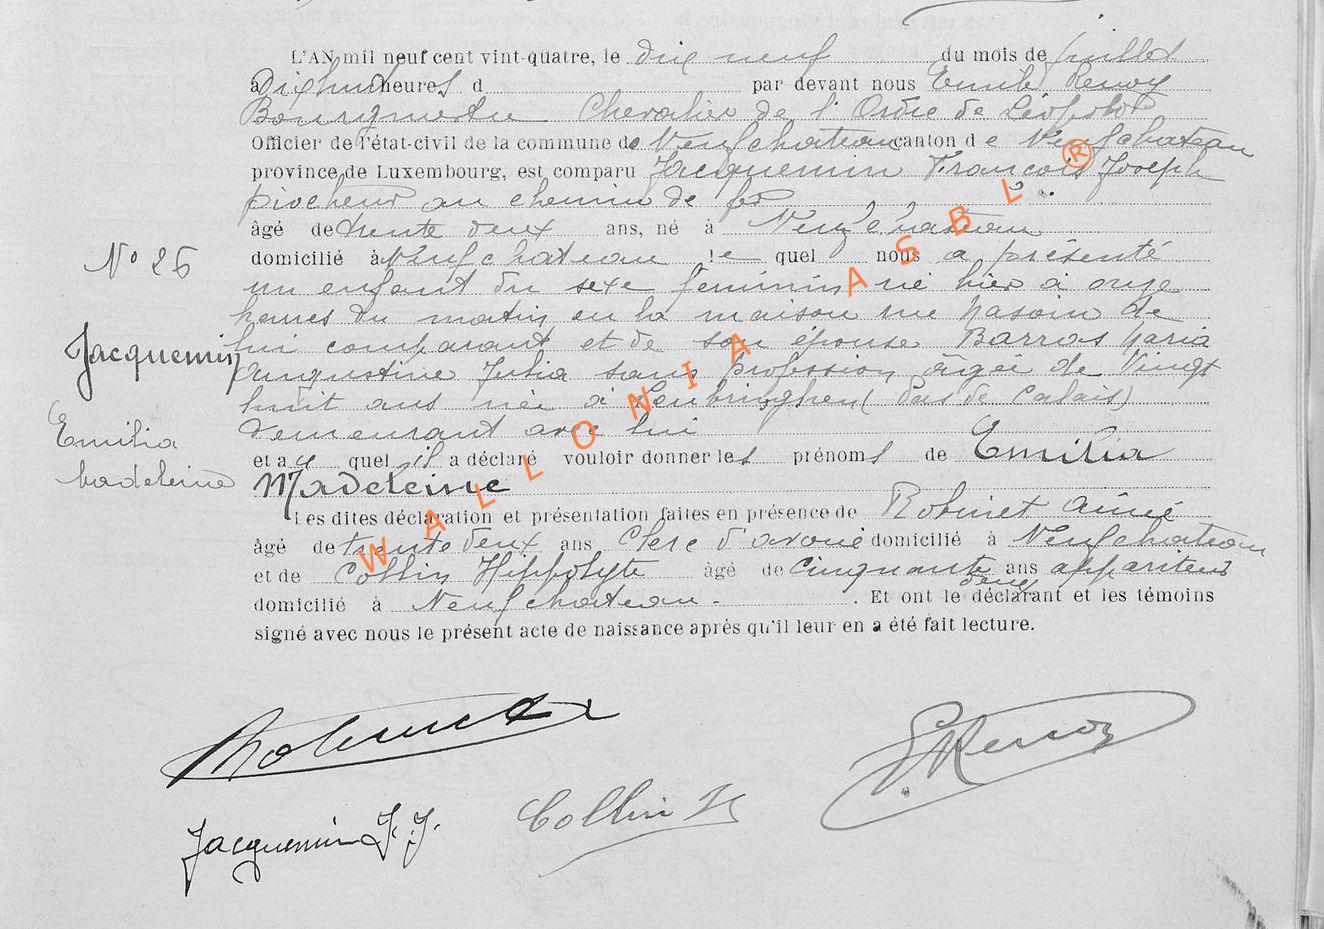 L'AN mil neuf cent vint-quatre, le dix neuf du mois de juillet
à Dixhuit heures d par devant nous Emile Renoy
Bourgmestre Chevalier de l'Ordre de Léopold
Officier de l'état-civil de la commune de Neufchateau canton de Neufchateau
province de Luxembourg, est comparu Jacquemin François Joseph
piocheur au chemin de fer
âgé de trente deux ans, né à Neufchateau
domicilié à Neufchateau le quel nous a présenté
un enfant du sexe féminin né hier à onze
heures du matin en la maison rue de
lui comparant et de son épouse Barras Maria
Augustine Julia sans profession âgée de Vingt
huit ans née à Leubringhen (Pas de Calais)
demeurant avec lui
et a quel il a déclaré vouloir donner les prénoms de Emilia
Madeleine
Les dites déclaration et présentation faites en présence de Robinet Aimé
âgé de trente deux ans Clerc d'avoué domicilié à Neufchateau
et de Collin Hippolyte âgé de cinquante deux ans appariteur
domicilié à Neufchateau. . Et ont le déclarant et les témoins
signé avec nous le présent acte de naissance après qu'il leur en a été fait lecture.
N° 26
Jacquemin
Emilia
Madeleine
Robinet A
ERenoy
Jacquemin F. J.
Collin H
WALLONIA ASBL ®